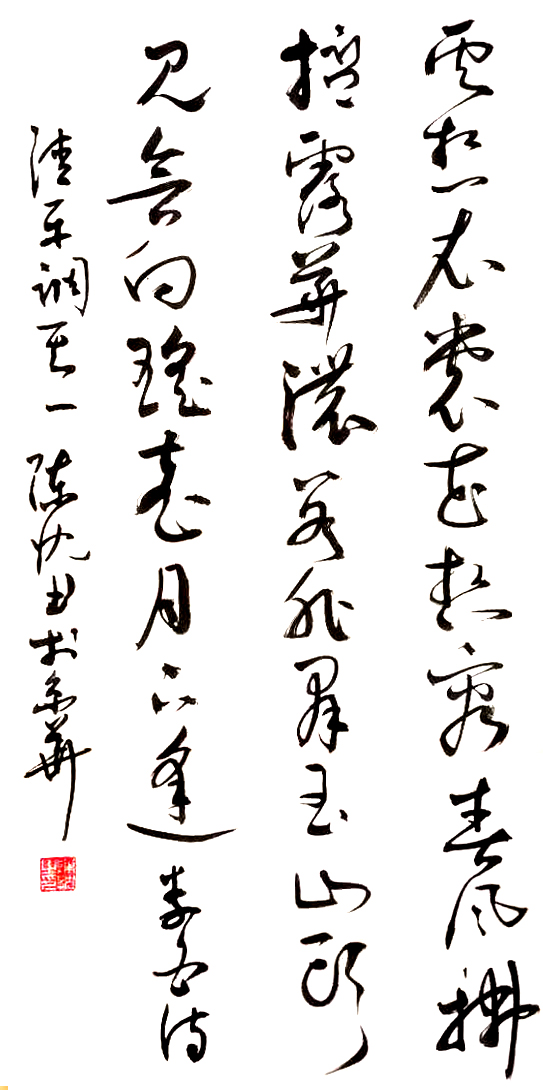 雲想衣裳花想容春風拂
檻露華濃若非羣玉山頭
見會向瑤臺月下逢李白詩
清平调其一 陈忱书於京華